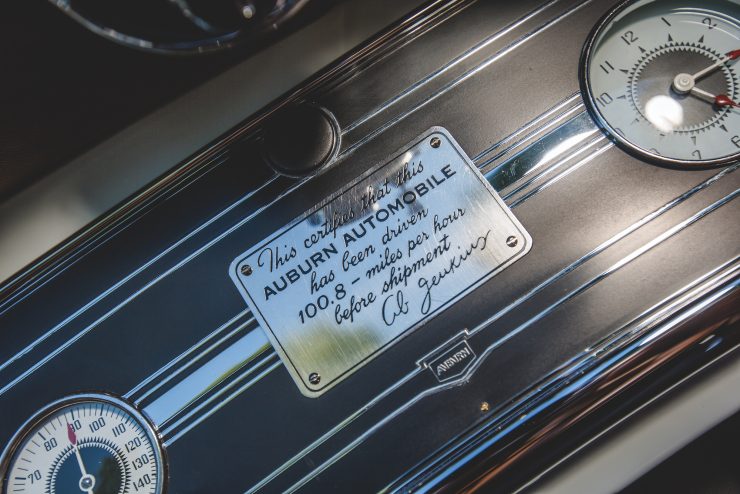 12
11
1
2
10
This certifies that this
AUBURN AUTOMOBILE
has been driven
100.8 - miles per hour
before shipment
Ab Jenkins
AUBURN
70
80
90
100
110
120
130
140